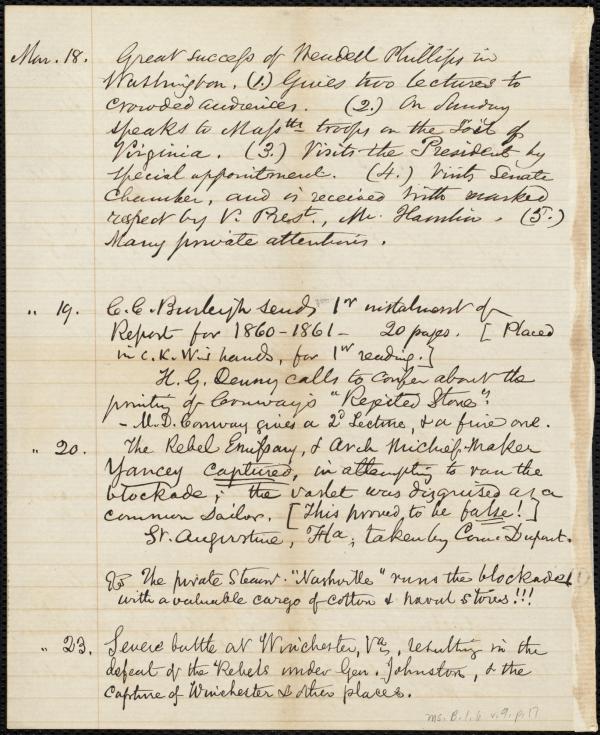 Mar. 18. Great success of Wendell Phillips in
Washington. (1.) Gives two lectures to
crowded audiences. (2.) On Sunday
speaks to Mass^tts troops on the Soil of
Virginia. (3.) Visits the President by
special appointment. (4.) Visits Senate
Chamber, and is received with marked
respect by V. Prest., Mr. Hamlin. (5.)
Many private attentions.
" 19. C. C. Burleigh sends 1st instalment of
Report for 1860-1861 - 20 pages. [Placed
in C. K. W's hands, for 1st reading.]
H. G. Denny calls to confer about the
printing of Conway's "Rejected Stone".
- M. D. Conway gives a 2d Lecture, & a fine one.
" 20. The Rebel Emissary, & Arch Mischief-Maker
Yancey captured, in attempting to run the
blockade; the varlet was disguised as a
common sailor. [This proved to be false!]
St. Augustine, Fla., taken by Com. Dupont.
The private Steamr. "Nashville" runs the blockade
with a valuable cargo of cotton & naval stores!!!
" 23. Severe battle at Winchester, Va., resulting in the
defeat of the Rebels under Gen. Johnston, & the
capture of Winchester & other places.
Ms. B.1.6 v.9, p.17